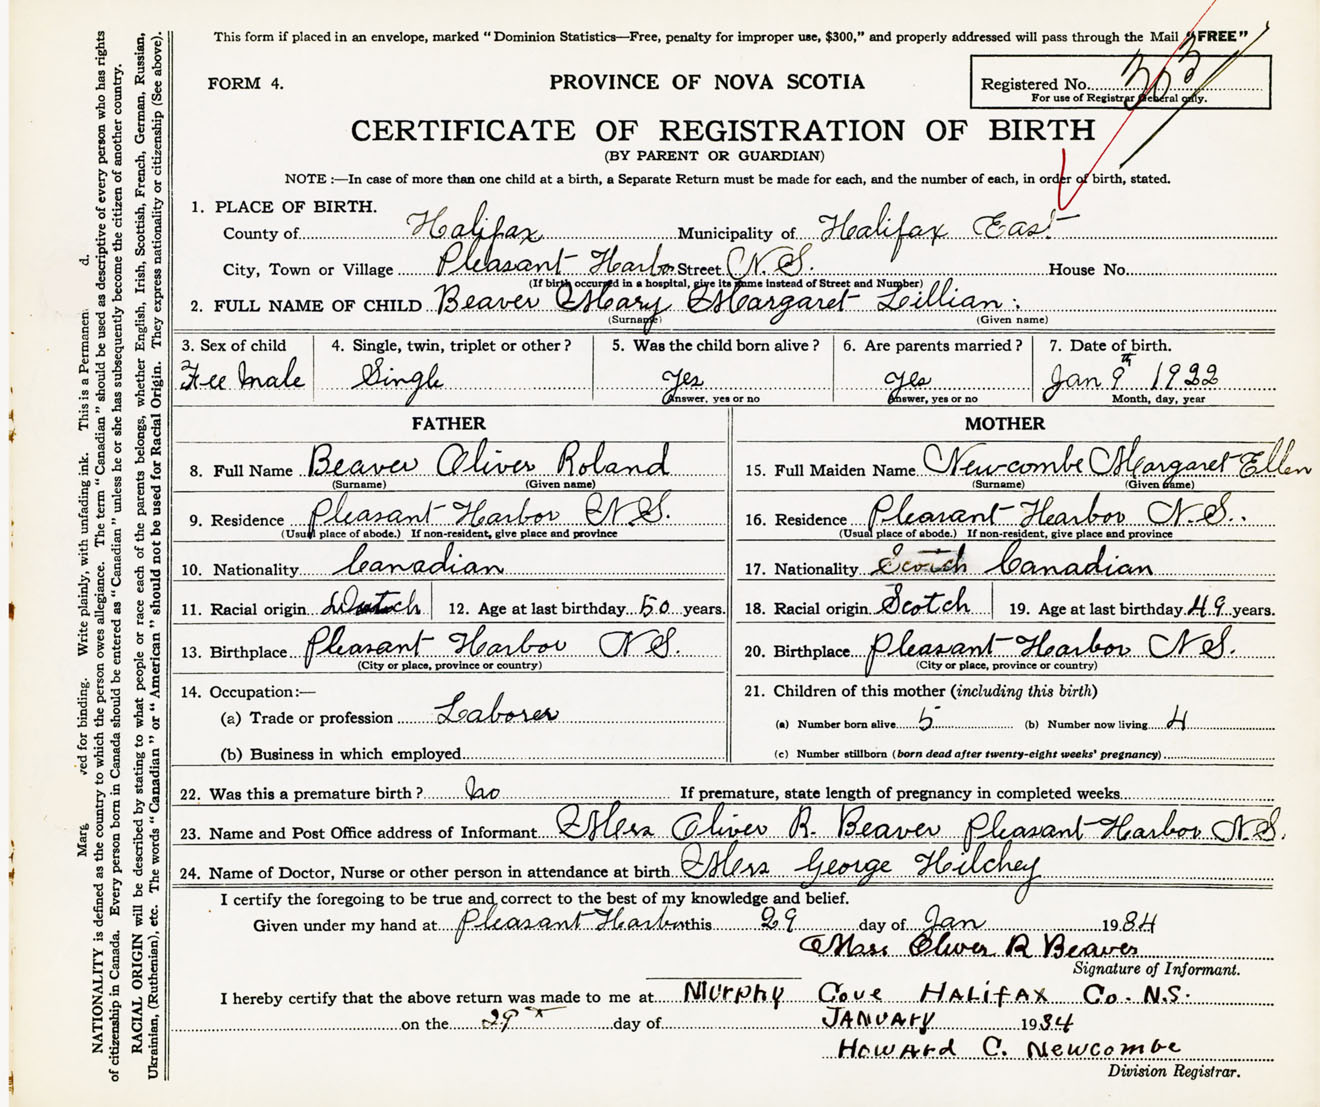 This form if placed in an envelope, marked "Dominion Statistics—Free, penalty for improper use, $300," and properly addressed will pass through the Mail "FREE"
FORM 4.
PROVINCE OF NOVA SCOTIA
Registered No.
For use of Registrar General only.
CERTIFICATE OF REGISTRATION OF BIRTH
(BY PARENT OR GUARDIAN)
NOTE :—In case of more than one child at a birth, a Separate Return must be made for each, and the number of each, in order of birth, stated.
1. PLACE OF BIRTH.
County of Halifax Municipality of Halifax East
City, Town or Village Pleasant Harbor Street N.S. House No.
(If birth occurred in a hospital, give its name instead of Street and Number)
2. FULL NAME OF CHILD Beaver Mary Margaret Lillian.
(Surname) (Given name)
3. Sex of child 4. Single, twin, triplet or other ? 5. Was the child born alive ? 6. Are parents married ? 7. Date of birth.
Fee male Single Yes Yes Jan 9th 1922
Answer, yes or no Answer, yes or no Month, day, year
FATHER MOTHER
8. Full Name Beaver Oliver Roland 15. Full Maiden Name Newcombe Margaret Ellen
(Surname) (Given name) (Surname) (Given name)
9. Residence Pleasant Harbor N.S. 16. Residence Pleasant Harbor N.S.
(Usual place of abode.) If non-resident, give place and province (Usual place of abode.) If non-resident, give place and province
10. Nationality Canadian 17. Nationality Scotch Canadian
11. Racial origin Dutch 12. Age at last birthday 50 years. 18. Racial origin Scotch 19. Age at last birthday 49 years.
13. Birthplace Pleasant Harbor N.S. 20. Birthplace Pleasant Harbor N.S.
(City or place, province or country) (City or place, province or country)
14. Occupation:— 21. Children of this mother (including this birth)
(a) Trade or profession Laborer (a) Number born alive 5 (b) Number now living 4
(b) Business in which employed (c) Number stillborn (born dead after twenty-eight weeks' pregnancy)
22. Was this a premature birth ? no If premature, state length of pregnancy in completed weeks
23. Name and Post Office address of Informant Mrs Oliver R. Beaver Pleasant Harbor N.S.
24. Name of Doctor, Nurse or other person in attendance at birth Mrs George Hilchey
I certify the foregoing to be true and correct to the best of my knowledge and belief.
Given under my hand at Pleasant Harbor this 29 day of Jan 1934
Mrs. Oliver R Beaver
Signature of Informant.
I hereby certify that the above return was made to me at Murphy Cove Halifax Co. N.S.
on the 29th day of January 1934
Howard C. Newcombe
Division Registrar.
Marg ved for binding. Write plainly, with unfading ink. This is a Permanen d.
NATIONALITY is defined as the country to which the person owes allegiance. The term "Canadian" should be used as descriptive of every person who has rights
of citizenship in Canada. Every person born in Canada should be entered as "Canadian" unless he or she has subsequently become the citizen of another country.
RACIAL ORIGIN will be described by stating to what people or race each of the parents belongs, whether English, Irish, Scottish, French, German, Russian,
Ukrainian, (Ruthenian), etc. The words "Canadian" or "American" should not be used for Racial Origin. They express nationality or citizenship (See above).